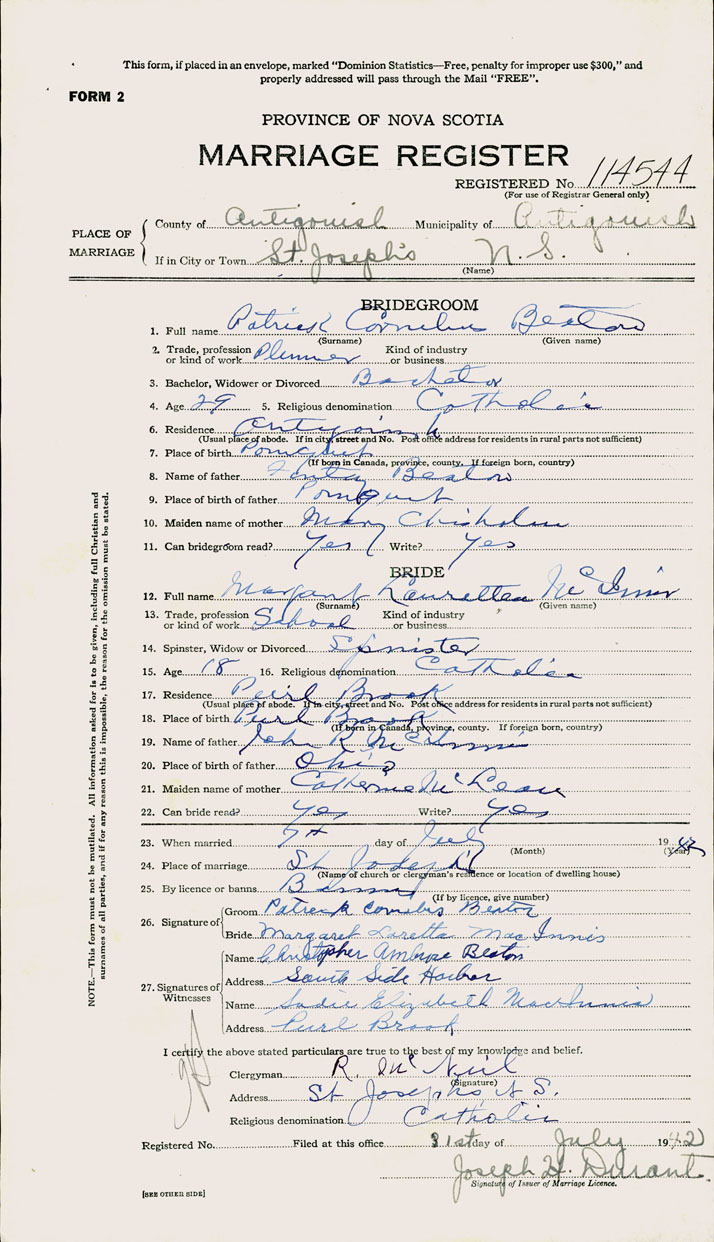 This form, if placed in an envelope, marked "Dominion Statistics—Free, penalty for improper use $300," and
properly addressed will pass through the Mail "FREE".
FORM 2
PROVINCE OF NOVA SCOTIA
MARRIAGE REGISTER
REGISTERED No. 114544
(For use of Registrar General only)
PLACE OF MARRIAGE
County of Antigonish Municipality of Antigonish
If in City or Town St. Joseph's N.S.
(Name)
BRIDEGROOM
1. Full name Patrick Cornelius Beaton
(Surname) (Given name)
2. Trade, profession or kind of work Kind of industry or business
3. Bachelor, Widower or Divorced Bachelor
4. Age 29 5. Religious denomination Catholic
6. Residence Antigonish
(Usual place of abode. If in city, street and No. Post office address for residents in rural parts not sufficient)
7. Place of birth Pomquet
(If born in Canada, province, county. If foreign born, country)
8. Name of father Beaton
9. Place of birth of father Pomquet
10. Maiden name of mother Mary Chisholm
11. Can bridegroom read? Yes Write? Yes
BRIDE
12. Full name Margaret Lauretta McInnis
(Surname) (Given name)
13. Trade, profession or kind of work School Kind of industry or business
14. Spinster, Widow or Divorced Spinster
15. Age 18 16. Religious denomination Catholic
17. Residence Purl Brook
(Usual place of abode. If in city, street and No. Post office address for residents in rural parts not sufficient)
18. Place of birth Purl Brook
(If born in Canada, province, county. If foreign born, country)
19. Name of father John R. McInnis
20. Place of birth of father Ohio
21. Maiden name of mother Catherine McLean
22. Can bride read? Yes Write? Yes
23. When married 7th day of July 1942
(Month) (Year)
24. Place of marriage St Joseph's
(Name of church or clergyman's residence or location of dwelling house)
25. By licence or banns Banns
(If by licence, give number)
26. Signature of
Groom Patrick Cornelius Beaton
Bride Margaret Laretta MacInnis
27. Signatures of Witnesses
Name Christopher Ambrose Beaton
Address South Side Harbor
Name Sadie Elizabeth MacInnis
Address Purl Brook
I certify the above stated particulars are true to the best of my knowledge and belief.
Clergyman R. McNeil
(Signature)
Address St Josephs N S.
Religious denomination Catholic
Registered No. Filed at this office 31st day of July 1942
Joseph H. Durant.
Signature of Issuer of Marriage Licence.
[SEE OTHER SIDE]
NOTE.—This form must not be mutilated. All information asked for is to be given, including full Christian and
surnames of all parties, and if for any reason this is impossible, the reason for the omission must be stated.